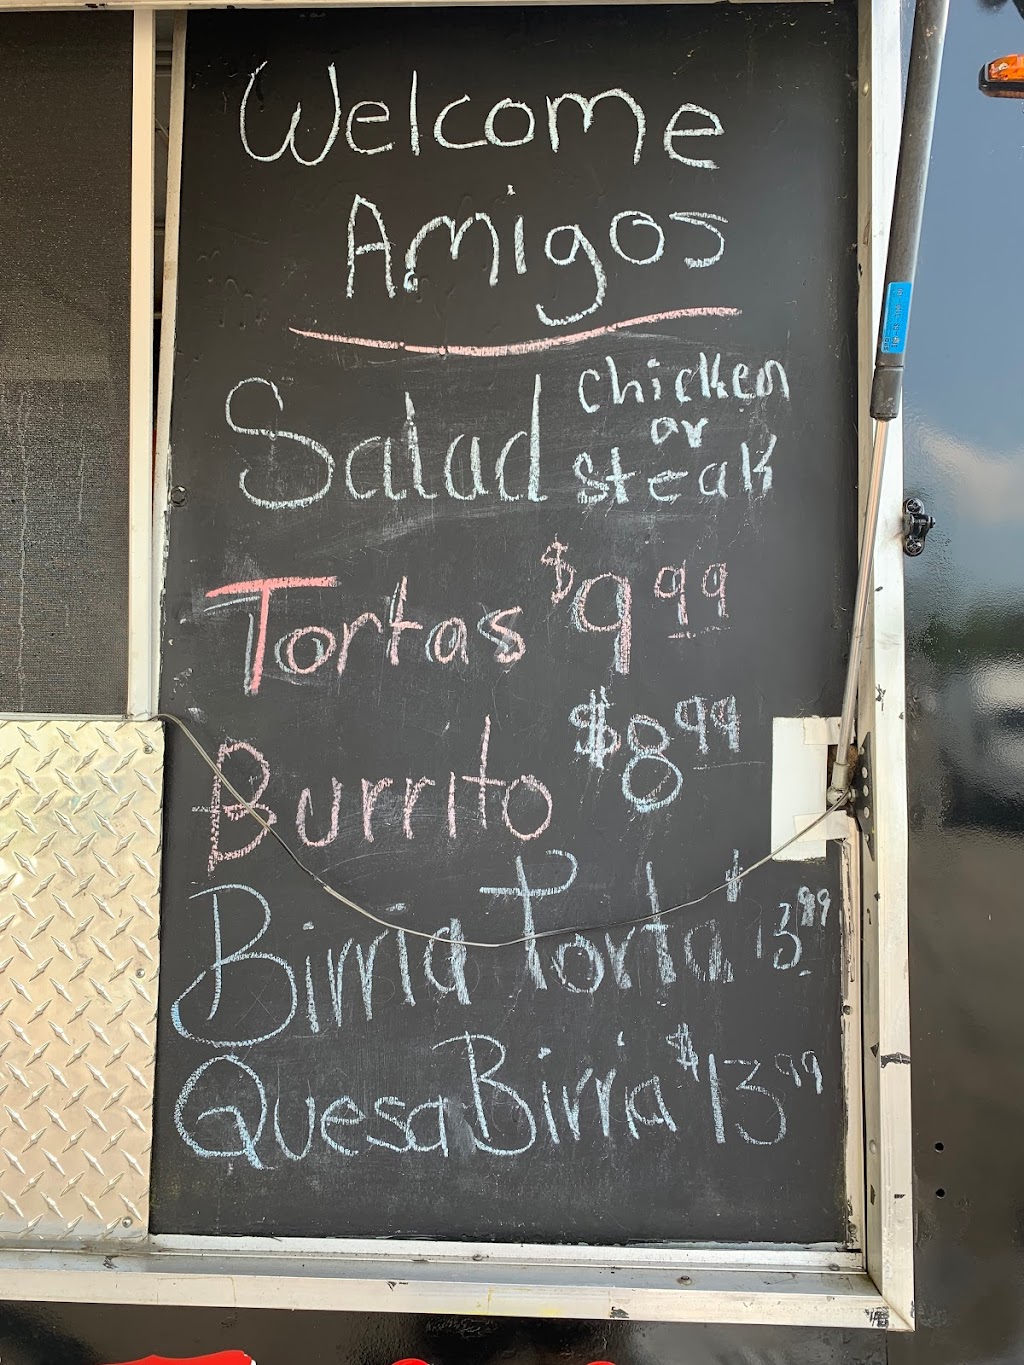 Welcome
Amigos
Salad chicken
or
steak
Tortas $9.99
Burrito $8.99
Birria Torta $13.99
QuesaBirria $13.99